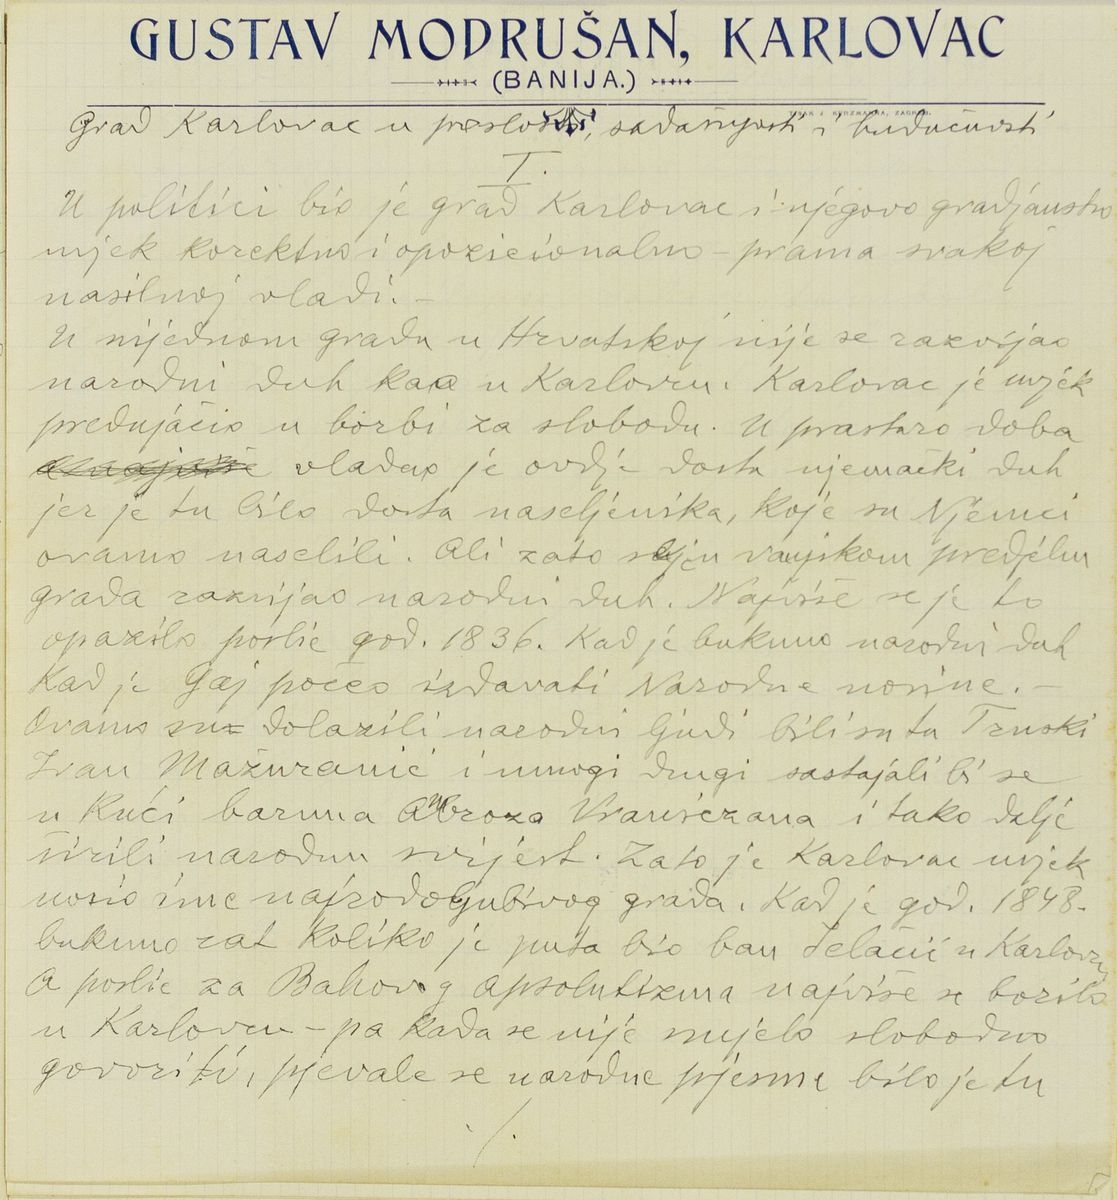 GUSTAV MODRUŠAN, KARLOVAC
(BANIJA.)
Grad Karlovac u prošlosti, sadašnjosti i budućnosti
I.
U politici bio je grad Karlovac i njegovo gradjanstvo
uvjek korektno i opozicionalno – prama svakoj
nasilnoj vladi. –
U nijednom gradu u Hrvatskoj nije se razvijao
narodni duh kao u Karlovcu. Karlovac je uvjek
prednjačio u borbi za slobodu. U prastaro doba
vladao je ovdje dosta njemački duh
jer je tu bilo dosta naseljenika, koje su Njemci
ovamo naselili. Ali zato se je u vanjskom predjelu
grada razvijao narodni duh. Najviše se je to
opazilo poslie god. 1836. Kad je buknuo narodni duh
Kad je Gaj počeo izdavati Narodne novine. –
Ovamo su dolazili narodni ljudi bili su tu Trnski
Ivan Mažuranić i mnogi drugi sastajali bi se
u kući baruna Ambroza Vraniczana i tako dalje
širili narodnu svijest. Zato je Karlovac uvjek
nosio ime najrodoljubivog grada. Kad je god. 1848.
buknuo rat koliko je puta bio ban Jelačić u Karlovcu
A poslie za Bahovog apsolutizma najviše se borilo
u Karlovcu – pa kada se nije smjelo slobodno
govoriti, pjevale se narodne pjesme bilo je tu
./.